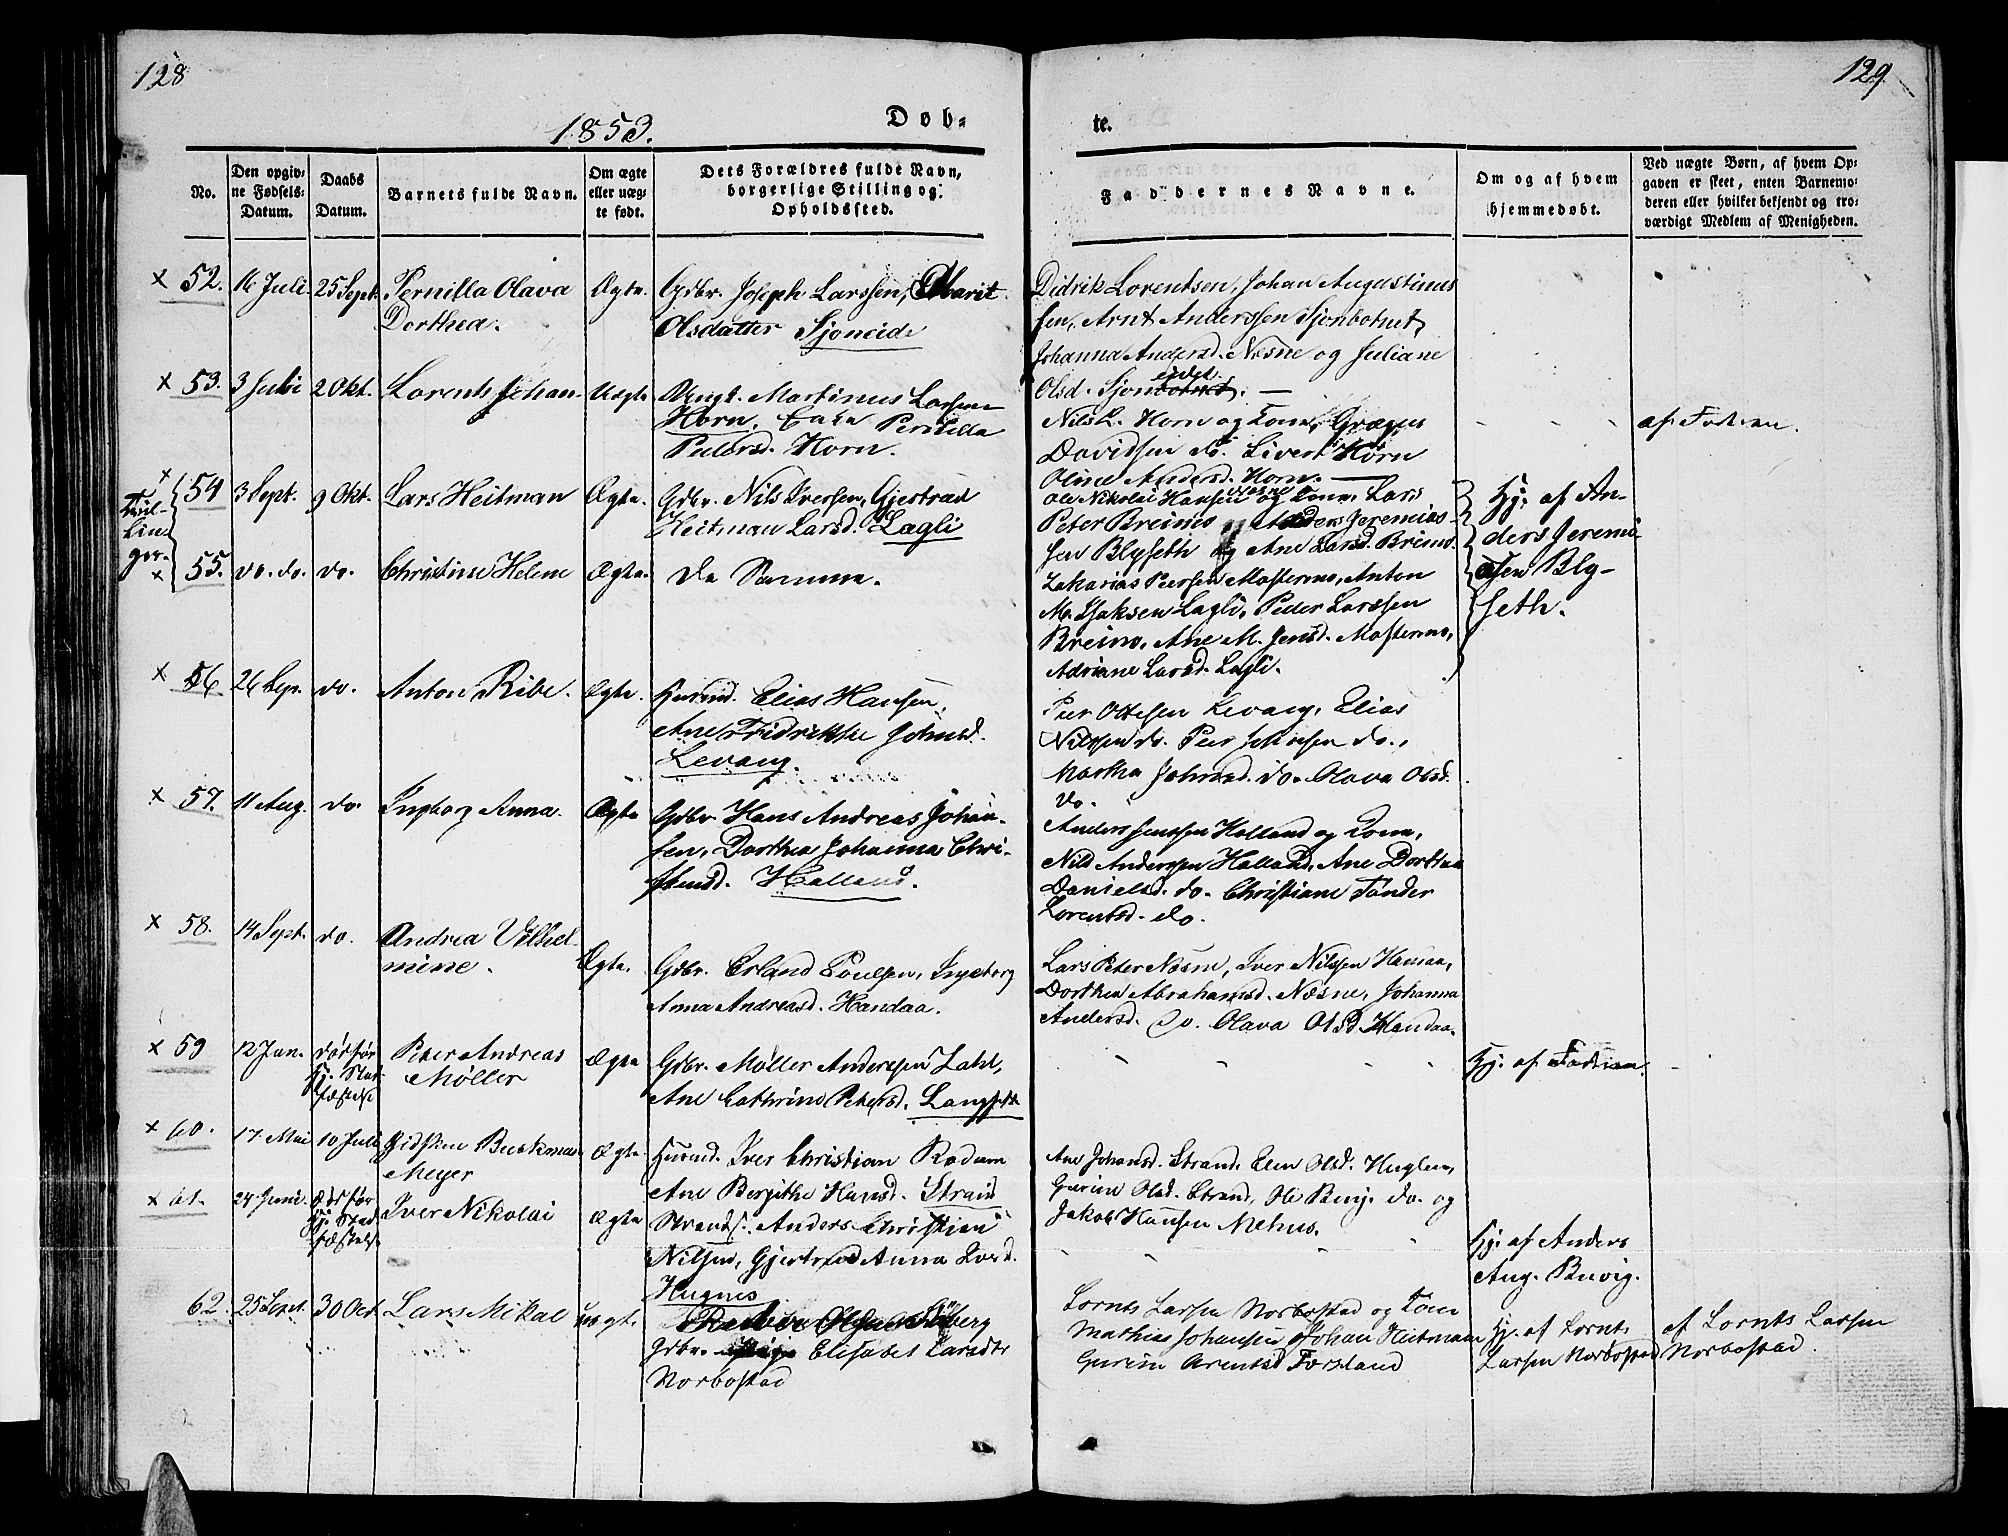 128
129
1853.
Døb-
te.
No.
Den opgiv-
ne Fødsels-
Datum.
Daabs
Datum.
Barnets fulde Navn.
Om ægte
eller uæg-
te født.
Dets Forældres fulde Navn,
borgerlige Stilling og
Opholdssted.
Faddernes Navne.
Om og af hvem
hjemmedøbt.
Ved uægte Børn, af hvem Op-
gaven er skeet, enten Barnemo-
deren eller hvilket bekjendt og tro-
værdigt Medlem af Menigheden.
x 52. 16 Juli 25 Sept. Pernilla Olava
Dorthea.
Ægte.
Gdbr. Joseph Larssen, Marit
Olsdatter Sjoneide
Didrik Lorentsen, Johan Augustinus
sen, Arnt Anderssen Sjonbotnet,
Johanna Andersd. Næsne og Juliane
Olsd. Sjonbotnet. —
eidet
x 53. 3 Juli 2 Okt. Lorents Johan
Uægte
Ungk. Martinus Larsen
Horn, Enke Pernilla
Petersd. Horn.
Nils L. Horn og Kone, Græger
Davidsen do. Sivert Horn
Oline Andersd. Horn. —
af Faderen.
x 54 3 Sept. 9 Okt. Lars Heitman Ægte.
Tvil-
lin-
ger.
Gdbr. Nils Iversen, Gjertrud
Heitman Larsd. Lagli
Ole Nikolai Hansen Næsne og Kone, Lars
Peter Breimo Anders Jeremias-
sen Blyseth og Ane Larsd. Breimo.
Hj. af An-
ders Jeremi-
sen Bly-
seth.
x 55. do. do. do. Christine Helene Ægte. De Samme.
Zakarias Peersen Mastermo, Anton
M. Isaksen Lagli, Peder Larssen
Breimo, Ane M. Jensd. Mastermo,
Adriane Larsd. Lagli.
x 56 26 Sep. do. Anton Ribe. Ægte.
Huusmd. Elias Hansen,
Ane Fridrikke Johnsd.
Levang.
Peer Ottesen Levang, Elias
Nilssen do. Peer Johnsen do.,
Martha Johnsd. do. Olava Olsd.
do.
x 57. 11 Aug. do. Ingborg Anna. Ægte
Gdbr. Hans Andreas Johan-
sen, Dorthea Johanna Chri-
stensd. Halland.
Anders Jenssen Halland og Kone,
Nils Anderssen Halland, Ane Dorthea
Danielsd. do. Christiane Tønder
Lorentsd. do.
x 58. 14 Sept. do. Andrea Vilhel-
mine. Ægte.
Gdbr. Erland Poulsen, Ingeborg
Anna Andreasd. Handaa.
Lars Peter Næsne, Iver Nilssen Hanaa,
Dorthea Abrahamsd. Næsne, Johanna
Andersd. do. Olava Olsd. Handaa.
x 59 12 Jan. død før
Hj. Stad-
fæstelse
Peter Andreas
Møller Ægte
Gdbr. Møller Anderssen Zahl,
Ane Cathrine Petersd. Langset
Hj. af Faderen.
x 60. 17. Mai 10 Juli Gidsken Buckman
Meyer
Ægte.
Huusmd. Iver Christian Rodum
Ane Bergithe Hansd. Strand
Ane Johansd. Strand. Elen Olsd. Huglen,
Gurine Olsd. Strand, Ole Benj. do. og
Jakob Hansen Nehus.
x 61. 24 Juni. død før
Hj. Stad-
fæstelse
Iver Nikolai Ægte
Strands. Anders Christian
Nilsen, Gjertrud Anna Iversd.
Hugnes
Hj. af Anders
Aug. Buvig.
62. 25 Sept. 30 Oct. Lars Mikal Uægte.
Gdbr. Elisabet Larsdtr
Norbostad
Lornts Larsen Norbostad og Kone
Mathias Johansen Johan Heitmann
Gurine Arentsd Forsland
Hj. af Lornts
Larsen Norbostad
af Lornts Larsen
Norbostad.